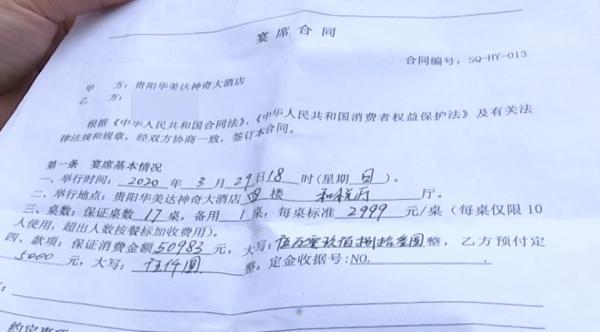 宴席合同
合同编号: SQ-HY-013
甲 方: 贵阳华美达神奇大酒店
乙 方:
根据《中华人民共和国合同法》、《中华人民共和国消费者权益保护法》及有关法
律法规和规章, 经双方协商一致, 签订本合同。
第一条 宴席基本情况
一、举行时间: 2020 年 3 月 29 日 18 时(星期 日)。
二、举行地点: 贵阳华美达神奇大酒店 四 楼 厅。
三、桌数: 保证桌数 17 桌, 备用 1 桌, 每桌标准 2999 元/桌(每桌仅限10
人使用, 超出人数按餐标加收费用)。
四、款项: 保证消费金额 50983 元, 大写: 伍万零玖佰捌拾叁圆 整, 乙方预付定
5000 元, 大写: 伍仟圆 整。定金收据号: NO.